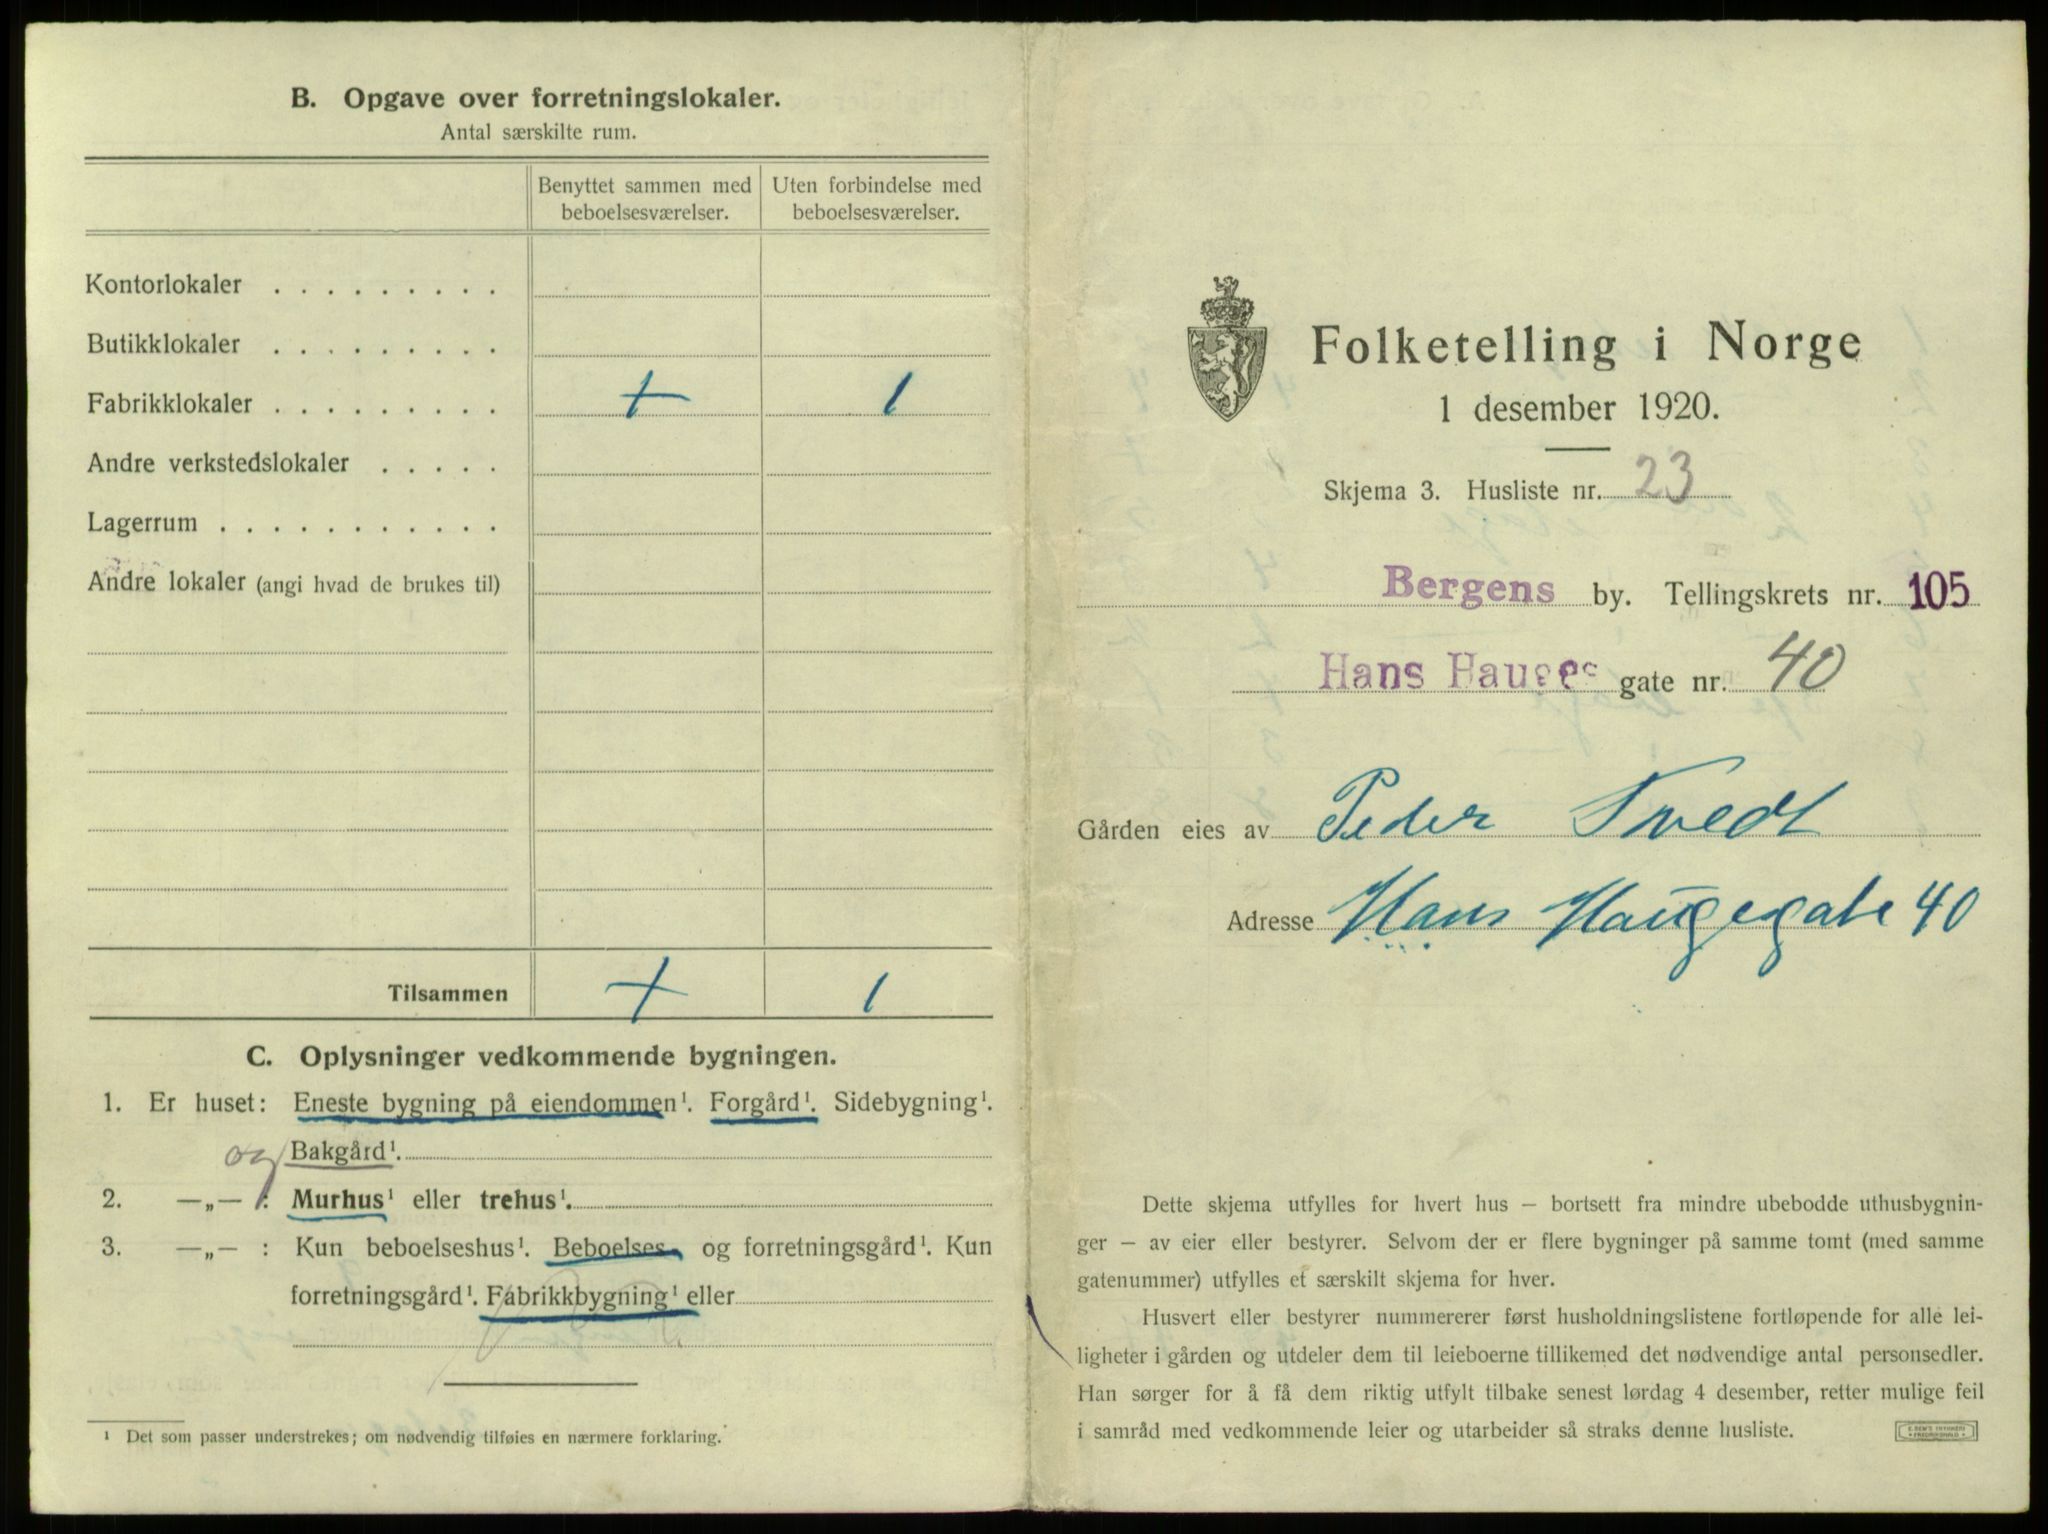 B. Opgave over forretningslokaler.
Antal særskilte rum.
Benyttet sammen med beboelsesværelser.
Uten forbindelse med beboelsesværelser.
Kontorlokaler . . . . . . . . .
Butikklokaler . . . . . . . . .
Fabrikklokaler . . . . . . . . . + 1
Andre verkstedslokaler . . . . .
Lagerrum . . . . . . . . . . . .
Andre lokaler (angi hvad de brukes til)
Tilsammen + 1
C. Oplysninger vedkommende bygningen.
1. Er huset: Eneste bygning på eiendommen¹. Forgård¹. Sidebygning¹.
og Bakgård¹.
2. —„— : Murhus¹ eller trehus¹.
3. —„— : Kun beboelseshus¹. Beboelses- og forretningsgård¹. Kun
forretningsgård¹. Fabrikkbygning¹ eller
¹ Det som passer understrekes; om nødvendig tilføies en nærmere forklaring.
Folketelling i Norge
1 desember 1920.
Skjema 3. Husliste nr. 23
Bergens by. Tellingskrets nr. 105
Hans Hauges gate nr. 40
Gården eies av Peder Tvedt
Adresse Hans Haugegate 40
Dette skjema utfylles for hvert hus – bortsett fra mindre ubebodde uthusbygnin-
ger – av eier eller bestyrer. Selvom der er flere bygninger på samme tomt (med samme
gatenummer) utfylles et særskilt skjema for hver.
Husvert eller bestyrer nummererer først husholdningslistene fortløpende for alle lei-
ligheter i gården og utdeler dem til leieboerne tillikemed det nødvendige antal personsedler.
Han sørger for å få dem riktig utfylt tilbake senest lørdag 4 desember, retter mulige feil
i samråd med vedkommende leier og utarbeider så straks denne husliste.